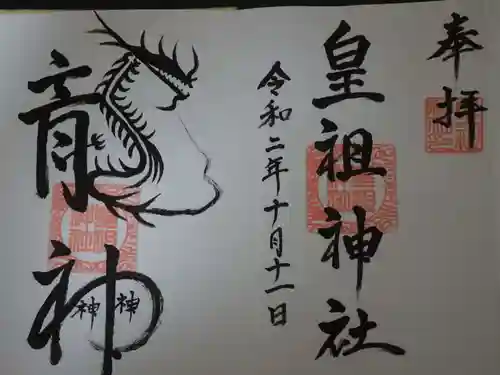 奉拝
皇祖神社
令和二年十月十一日
龍神
神神